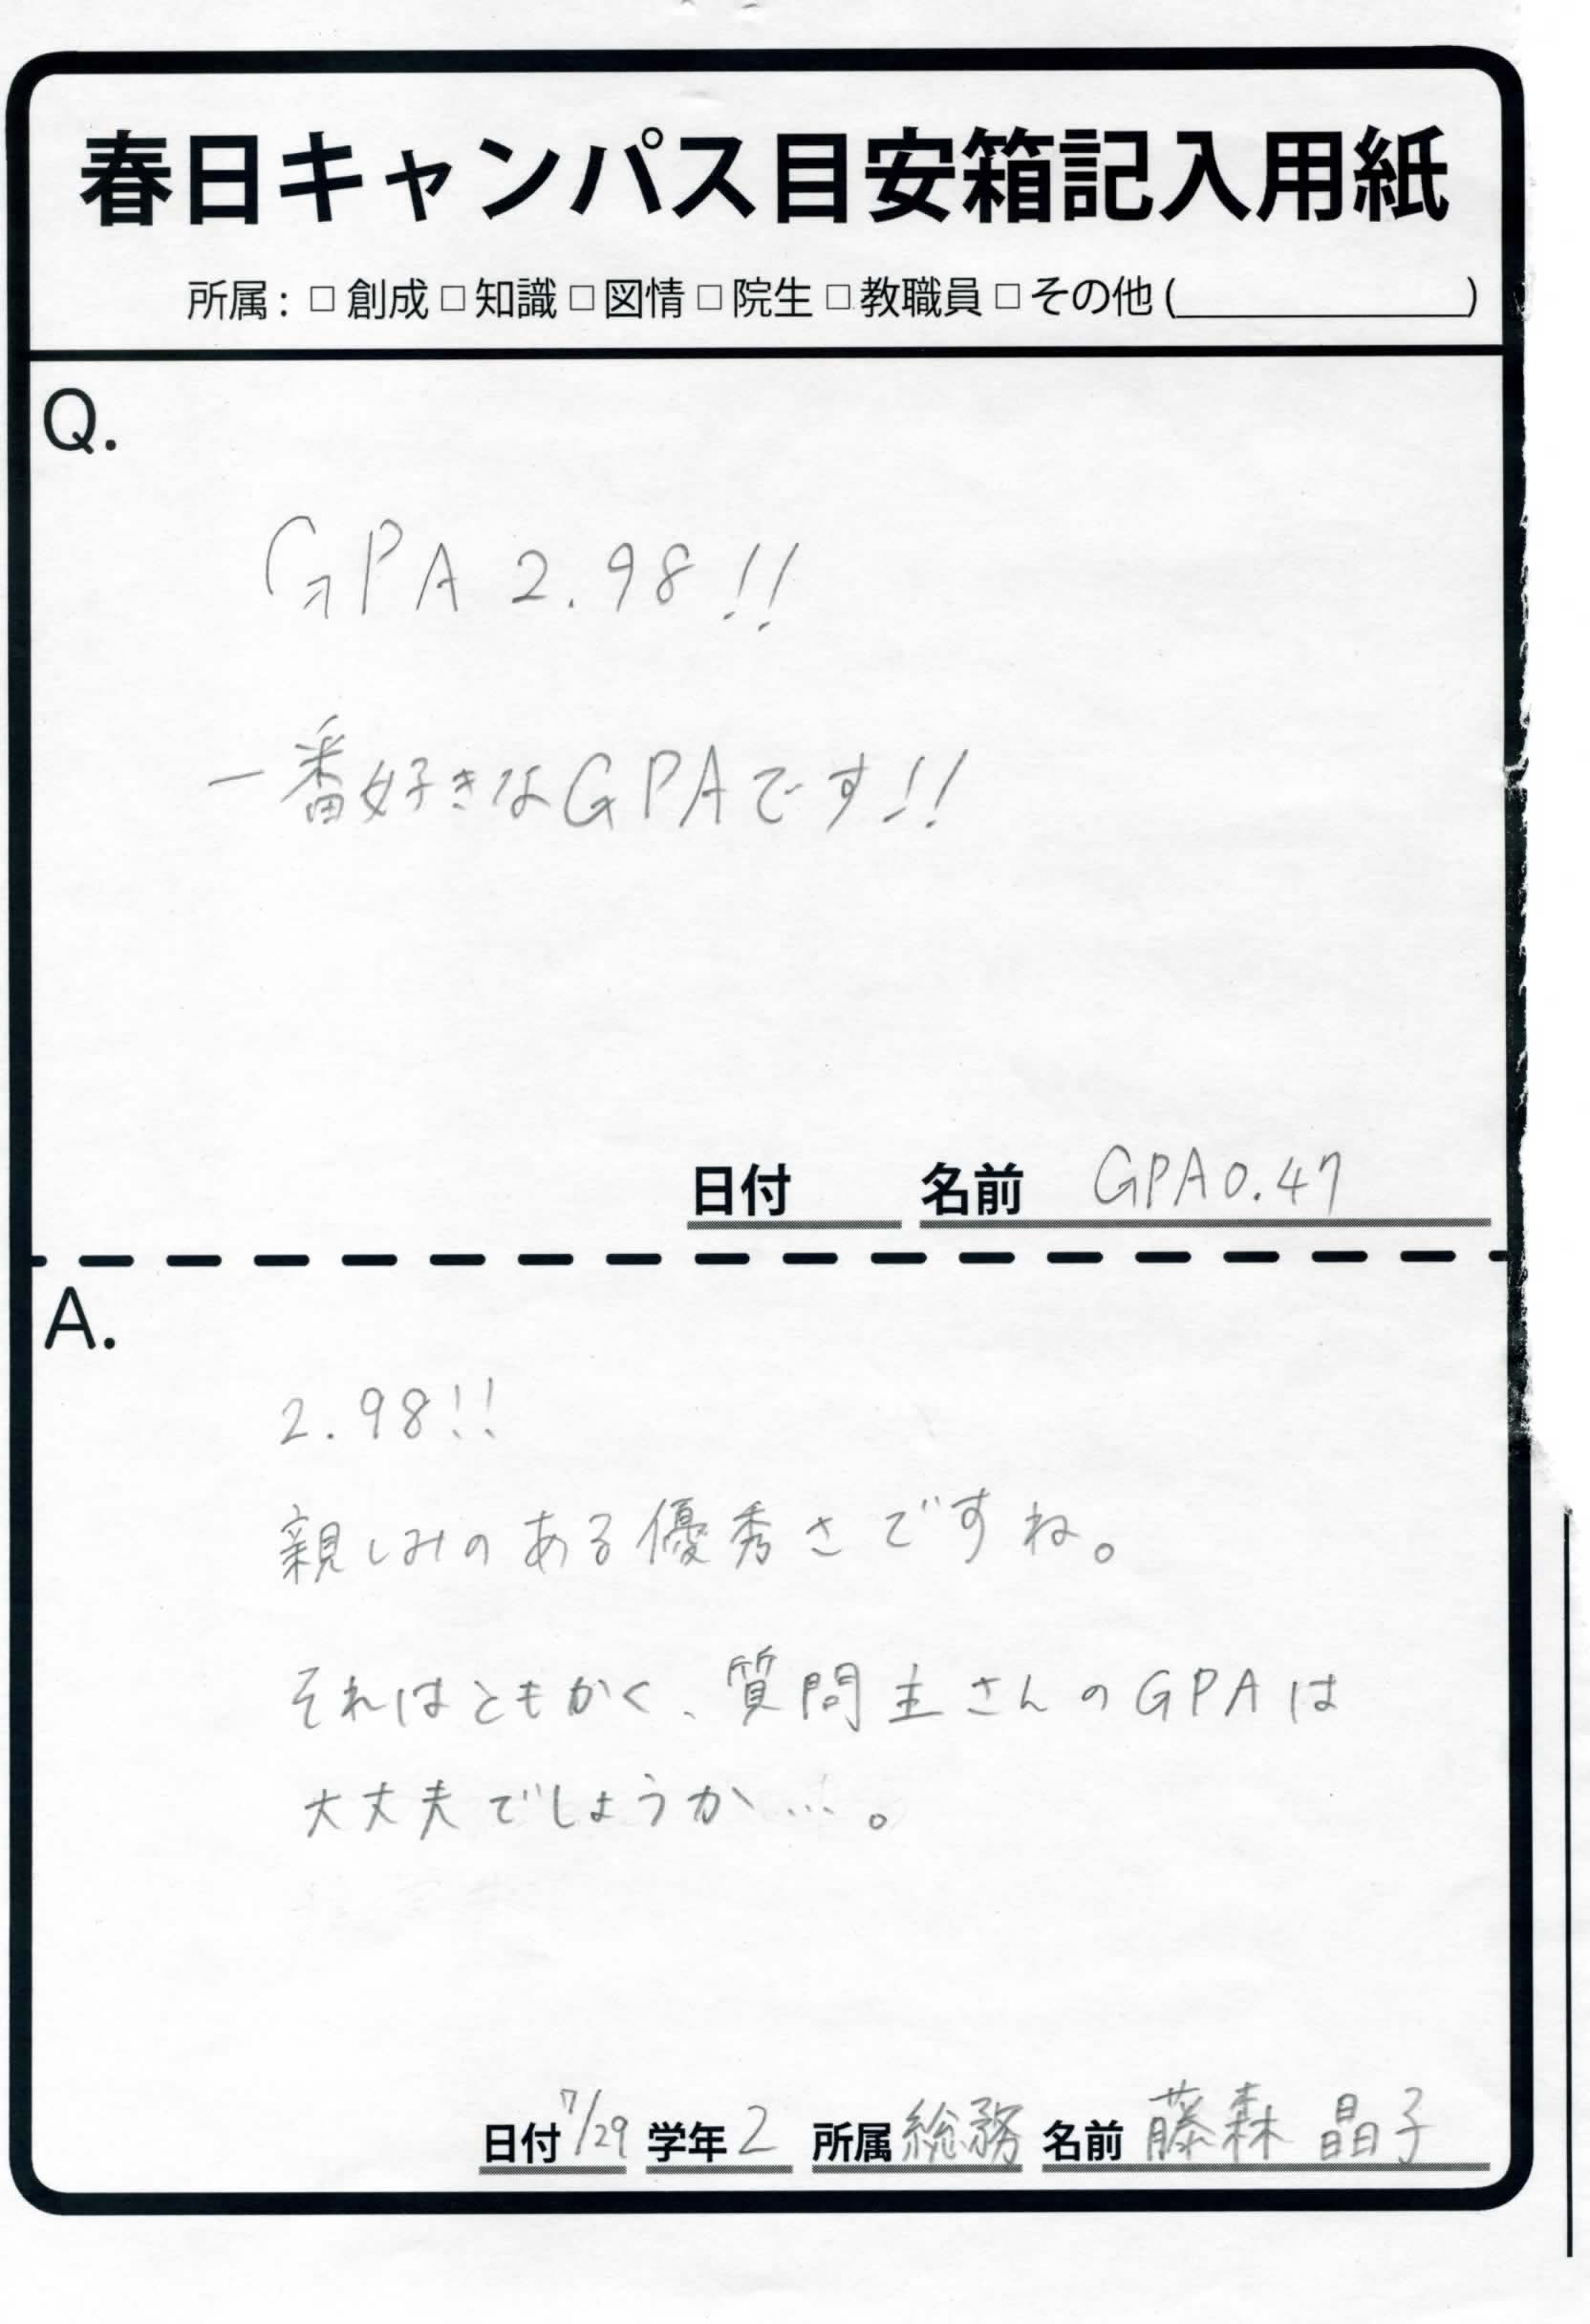 春日キャンパス目安箱記入用紙
所属：□創成□知識□図情□院生□教職員□その他(　　　　)
Q.
GPA 2.98!!
一番好きなGPAです!!
日付　名前 GPA0.47
A.
2.98!!
親しみのある優秀さですね。
それはともかく、質問主さんのGPAは
大丈夫でしょうか…。
日付 7/29 学年 2 所属 総務 名前 藤森 晶子